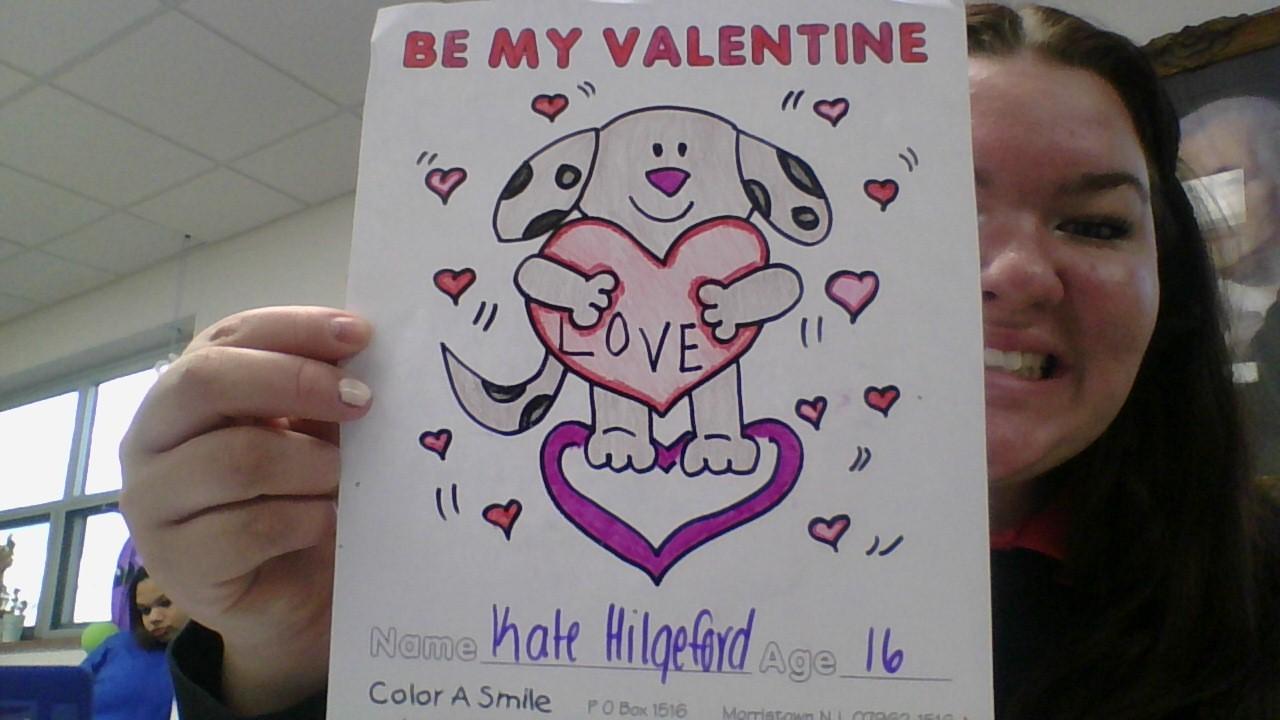 BE MY VALENTINE
LOVE
Name Kate Hilgeford Age 16
Color A Smile P O Box 1516 Morristown NJ